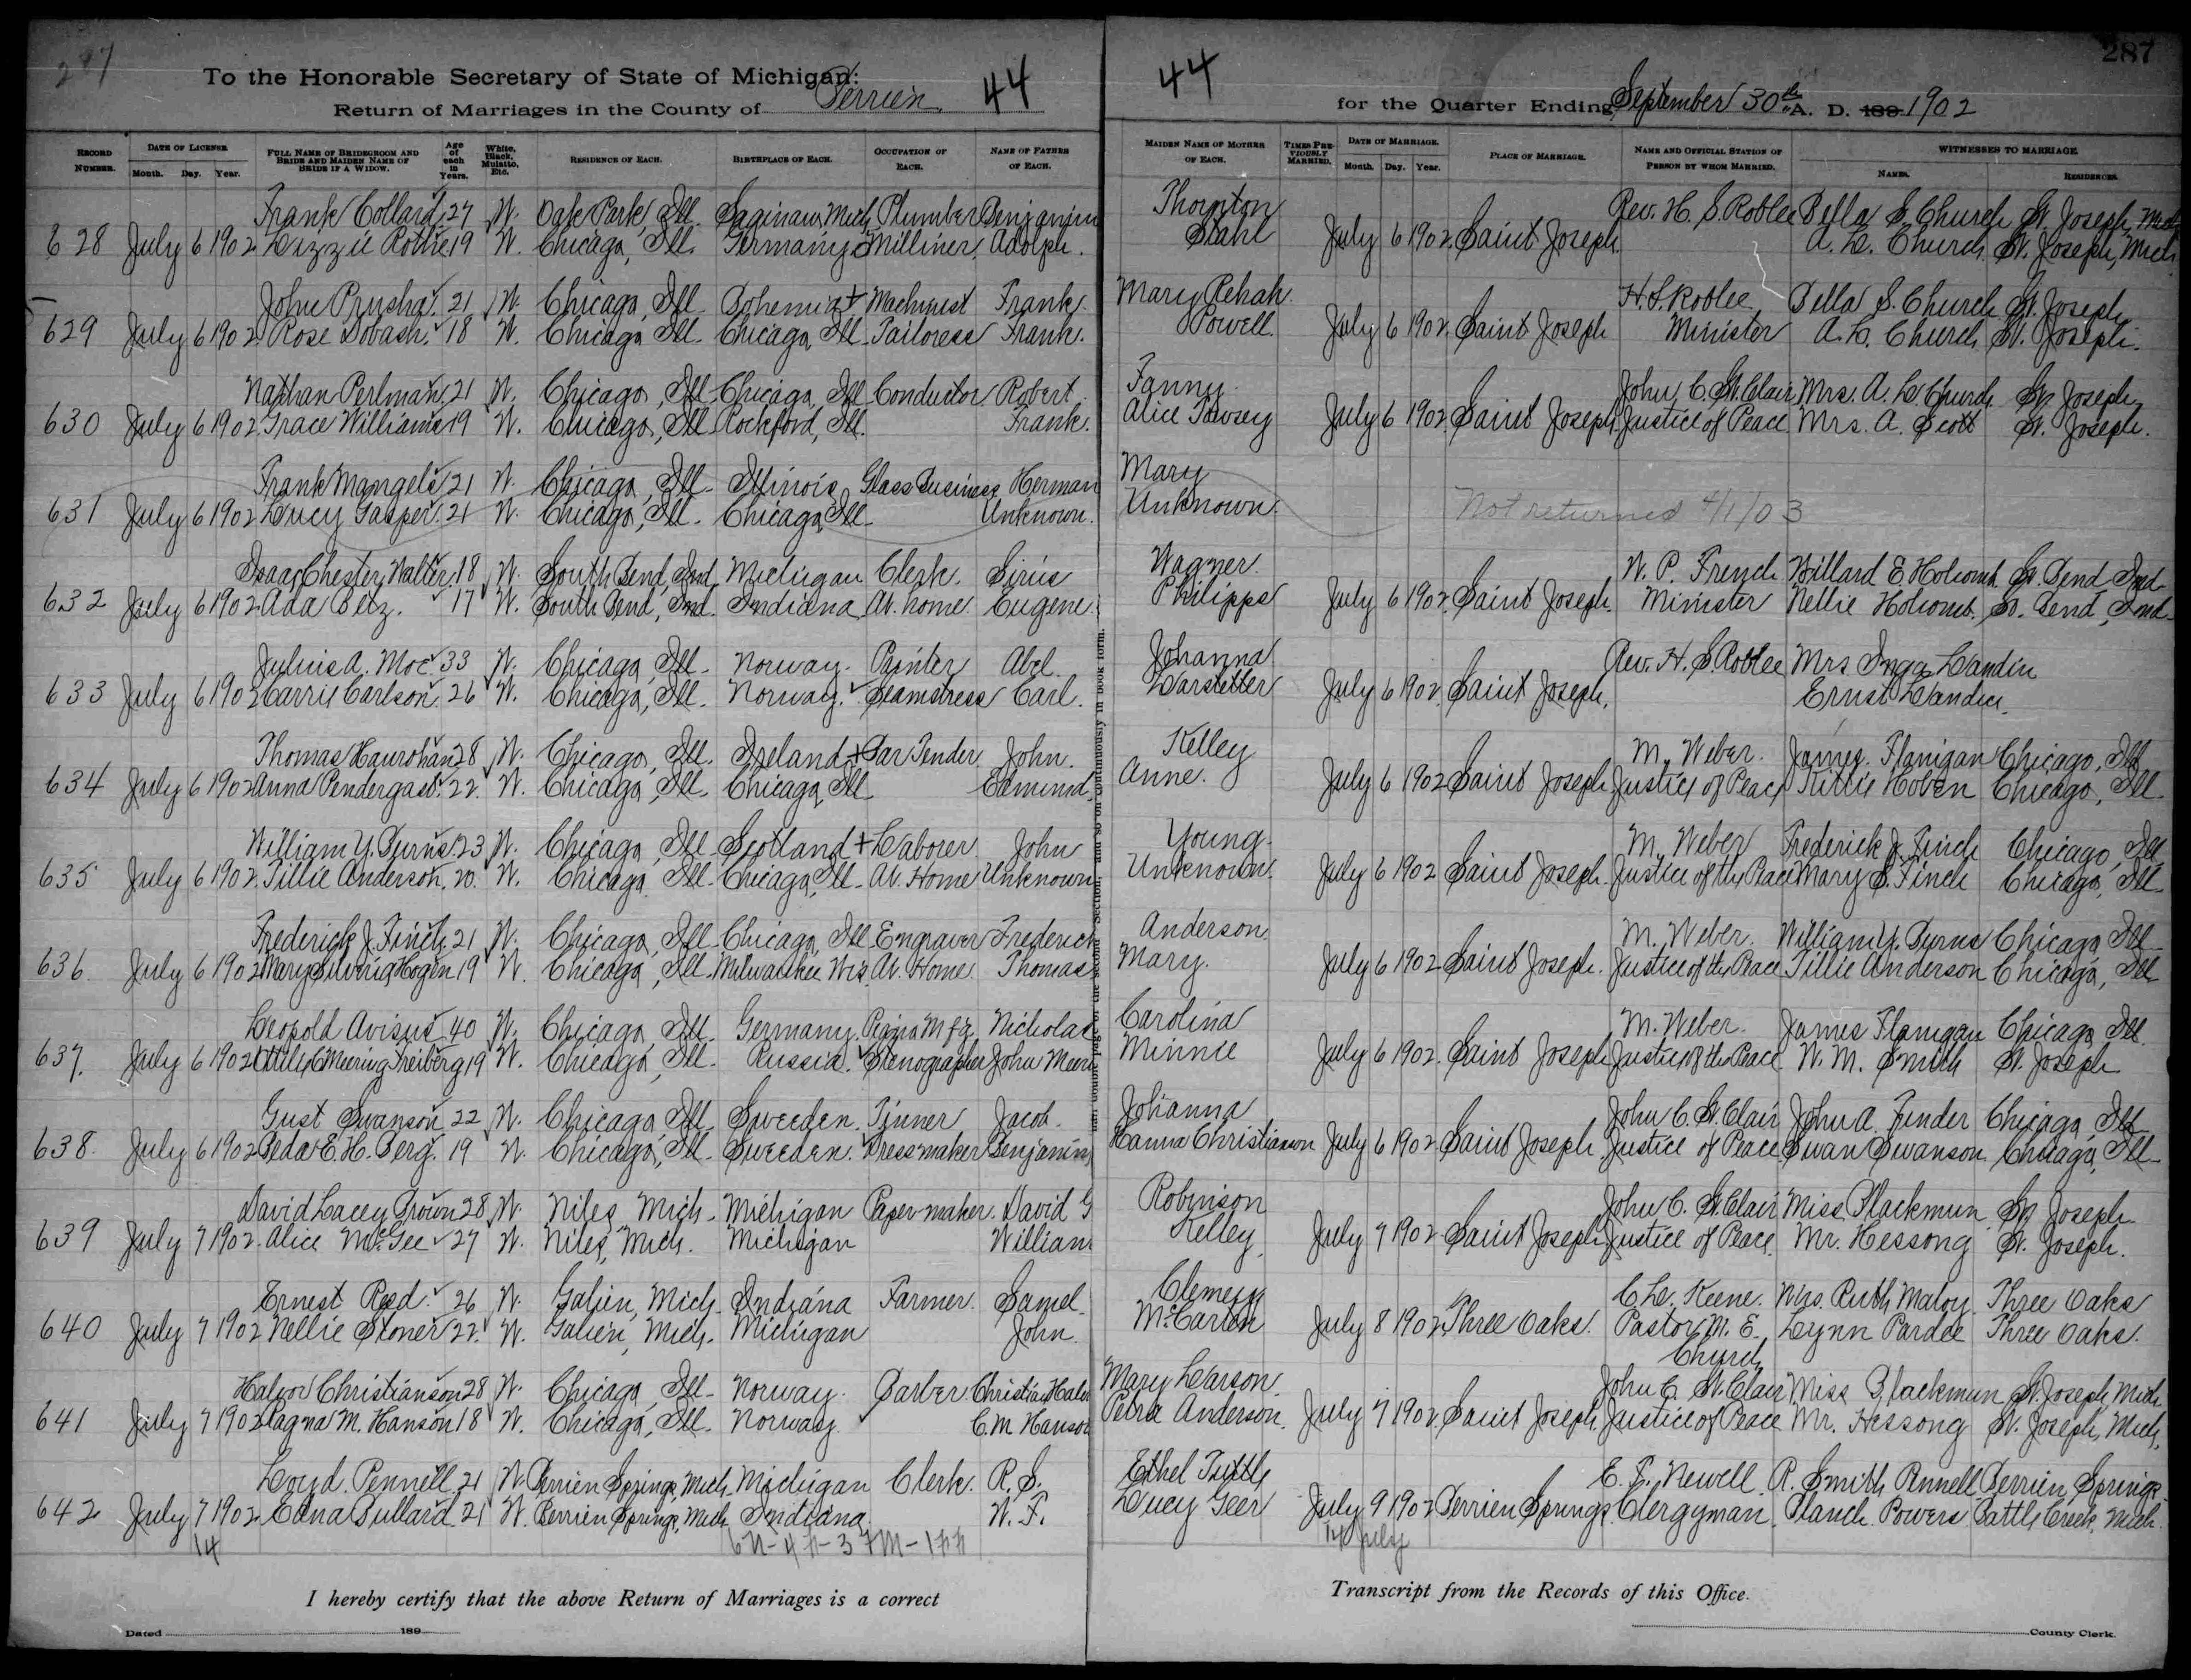 287
To the Honorable Secretary of State of Michigan:
Return of Marriages in the County of Berrien 44
44 for the Quarter Ending September 30th A. D. 189 1902
RECORD NUMBER. DATE OF LICENSE Month. Day. Year. FULL NAME OF BRIDEGROOM AND BRIDE AND MAIDEN NAME OF BRIDE IF A WIDOW. Age of each in Years. White, Black, Mulatto, Etc. RESIDENCE OF EACH. BIRTHPLACE OF EACH. OCCUPATION OF EACH. NAME OF FATHER OF EACH. MAIDEN NAME OF MOTHER OF EACH. TIMES PREVIOUSLY MARRIED. DATE OF MARRIAGE. Month. Day. Year. PLACE OF MARRIAGE. NAME AND OFFICIAL STATION OF PERSON BY WHOM MARRIED. WITNESSES TO MARRIAGE NAMES. RESIDENCES.
Frank Collard 27 W. Oak Park, Ill. Saginaw, Mich Plumber Benjamin Thornton Rev. H. S. Roblee Bella S. Church St. Joseph, Mich
628 July 6 1902 Lizzie Rothe 19 W. Chicago, Ill. Germany Milliner Adolph. Stahl July 6 1902 Saint Joseph. A. L. Church St. Joseph, Mich
John Prusha 21 W. Chicago, Ill. Bohemia + Machinist Frank. Mary Rehak. H. S. Roblee Della S. Church St. Joseph
629 July 6 1902 Rose Dobash. 18 W. Chicago Ill. Chicago, Ill. Tailoress Frank. Powell. July 6 1902. Saint Joseph Minister A. L. Church St. Joseph.
Nathan Perlman 21 W. Chicago, Ill. Chicago, Ill. Conductor Robert. Fanny. John C. St. Clair Mrs. A. L. Church St. Joseph
630 July 6 1902 Grace Williams 19 W. Chicago, Ill. Rockford, Ill. Frank. Alice July 6 1902 Saint Joseph. Justice of Peace Mrs. A. Scott St. Joseph.
Frank Mangels 21 W. Chicago, Ill. Illinois Glass Business Herman Mary
631 July 6 1902 Lucy Gasper. 21 W. Chicago, Ill. Chicago, Ill. Unknown. Unknown. Not returned 4/1/03
Isaac Chester Walter 18 W. South Bend, Ind. Michigan Clerk. Sirus Wagner. W. P. French Willard E. Holcomb So. Bend Ind
632 July 6 1902 Ada Betz. 17 W. South Bend, Ind. Indiana At home. Eugene. Philipps July 6 1902. Saint Joseph. Minister Nellie Holcomb. So. Bend, Ind
Julius A. Moe 33 W. Chicago, Ill. Norway. Painter Abel. Johanna Rev. H. S. Roblee Mrs Inga Landin
633 July 6 1902 Carrie Carlson. 26 W. Chicago, Ill. Norway. Seamstress Carl. July 6 1902. Saint Joseph. Ernst Landin.
Thomas 28 W. Chicago, Ill. Ireland + Bar Tender. John. Kelley M. Weber. James Flanigan Chicago, Ill
634 July 6 1902 Anna Pendergast. 22. W. Chicago, Ill. Chicago Ill. Edmund. Anne. July 6 1902 Saint Joseph Justice of Peace Kittie Hoben Chicago, Ill.
William Y. Burns 23 W. Chicago, Ill. Scotland + Laborer John Young. M. Weber Frederick J. Finch Chicago, Ill
635 July 6 1902. Tillie Anderson. 20. W. Chicago Ill. Chicago, Ill. At Home Unknown Unknown. July 6 1902 Saint Joseph. Justice of the Peace Mary S. Finch Chicago, Ill.
Frederick J. Finch 21 W. Chicago, Ill. Chicago, Ill. Engraver Frederick Anderson. M. Weber. William Y. Burns Chicago, Ill
636 July 6 1902 Mary Hogin 19 W. Chicago, Ill. Milwaukee Wis. At Home. Thomas Mary. July 6 1902 Saint Joseph. Justice of the Peace Tillie Anderson Chicago, Ill
Leopold Avisus 40 W. Chicago, Ill. Germany. Mfg. Nicholas Carolina M. Weber. James Flanigan Chicago, Ill.
637. July 6 1902 Freiberg 19 W. Chicago, Ill. Russia. Stenographer John Minnie July 6 1902. Saint Joseph Justice of the Peace W. M. Smith St. Joseph
Gust Swanson 22 W. Chicago, Ill. Sweeden. Tinner Jacob. Johanna John C. St. Clair John A. Chicago, Ill.
638. July 6 1902 E. H. Berg. 19 W. Chicago, Ill. Sweeden. Dressmaker Benjamin Hanna Christianson July 6 1902. Saint Joseph. Justice of Peace Swan Swanson Chicago, Ill.
David Lacey Brown 28 W. Niles, Mich. Michigan Paper maker. David G Robinson John C. St. Clair Miss Blackmun St. Joseph
639 July 7 1902. Alice McGee 27 W. Niles, Mich. Michigan William Kelley. July 7 1902 Saint Joseph Justice of Peace. Mr. Hessong St. Joseph.
Ernest Reed. 26 W. Galien, Mich. Indiana Farmer. Samel. C. L. Keene. Mrs. Ruth Maloy Three Oaks
640 July 7 1902 Nellie Stoner 22. W. Galien, Mich. Michigan John. McCarten July 8 1902 Three Oaks. Pastor M. E. Church Lynn Pardee Three Oaks.
Halvor Christianson 28 W. Chicago, Ill. Norway. Barber. Christian Mary Larson. John C. St. Clair Miss Blackmun St. Joseph, Mich
641 July 7 1902 Ragna M. Hanson 18 W. Chicago, Ill. Norway. C. M. Hanson Petra Anderson. July 7 1902. Saint Joseph. Justice of Peace Mr. Hessong St. Joseph, Mich.
Loyd. Pennell 21 W. Berrien Springs, Mich. Michigan Clerk. R. S. Ethel Tuttle E. P. Newell R. Smith Pennell Berrien Springs
642 July 7 1902. Edna Bullard 21 W. Berrien Springs, Mich Indiana. W. F. Lucy Geer July 9 1902 Berrien Springs. Clergyman. Blanch Powers Battle Creek, Mich.
14 14 July
I hereby certify that the above Return of Marriages is a correct Transcript from the Records of this Office.
Dated 189 County Clerk.